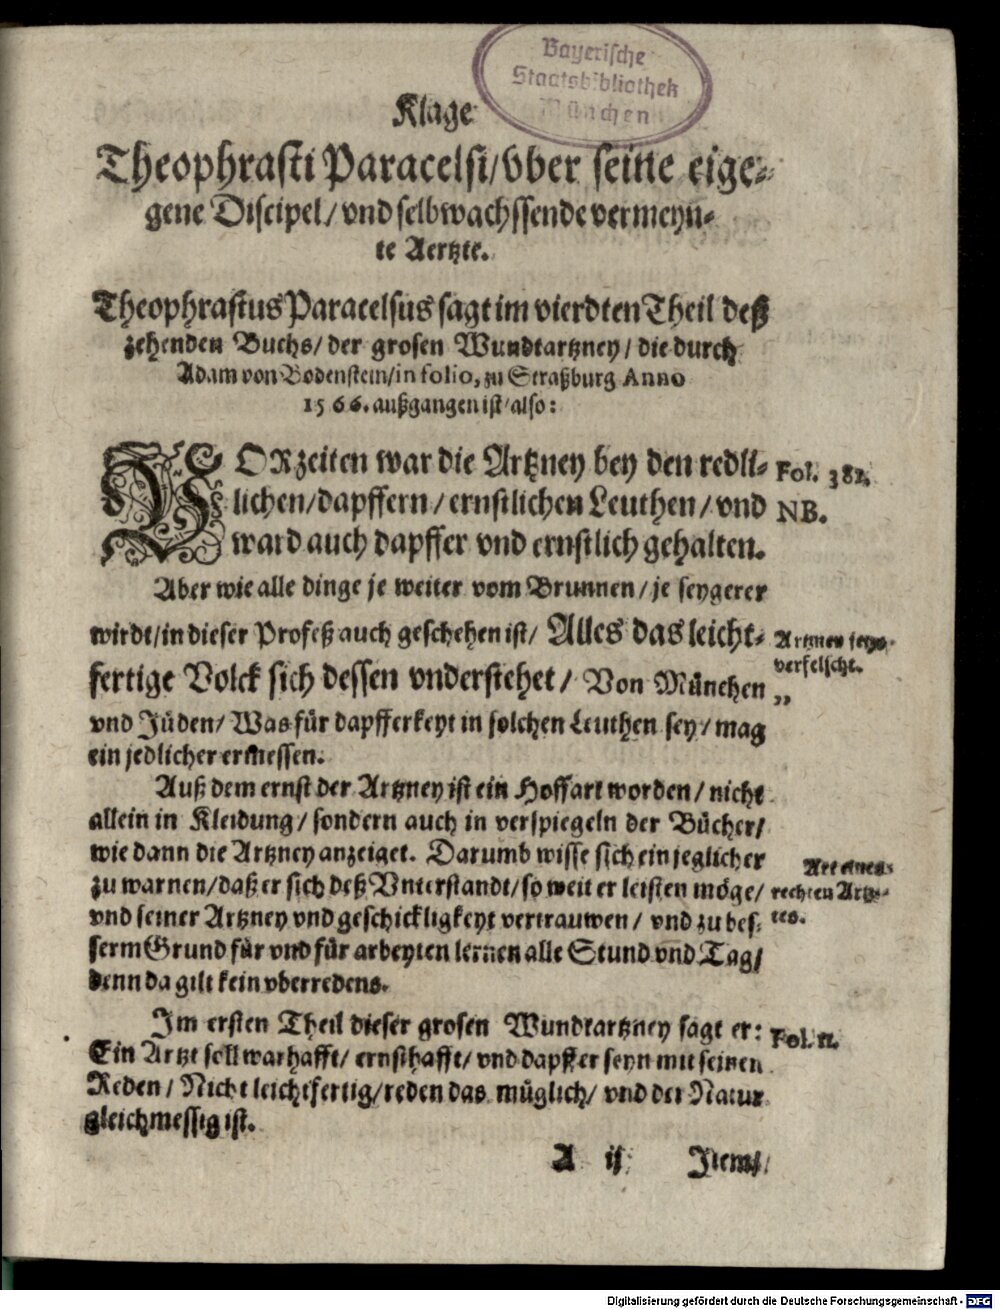 Bayerische
Staatsbibliothek
München
Klage
Theophrasti Paracelsi/vber seine eige-
gene Discipel/vnd selbwachssende vermeyn-
te Aertzte.
Theophrastus Paracelsus sagt im vierdten Theil deß
zehenden Buchs/der grosen Wundtartzney/die durch
Adam von Bodenstein/in folio, zu Straßburg Anno
1566. außgangen ist/also:
VORzeiten war die Artzney bey den redli-
lichen/dapffern/ernstlichen Leuthen/vnd
ward auch dapffer vnd ernstlich gehalten.
Fol. 382.
NB.
Aber wie alle dinge je weiter vom Brunnen/je seygerer
wirdt/in dieser Profeß auch geschehen ist/ Alles das leicht-
fertige Volck sich dessen vnderstehet/ Von München
vnd Jüden/Was für dapfferkeyt in solchen Leuthen sey/mag
ein jedlicher ermessen.
Artzney
verfelscht.
„
Auß dem ernst der Artzney ist ein Hoffart worden/nicht
allein in Kleidung/sondern auch in verspiegeln der Bücher/
wie dann die Artzney anzeiget. Darumb wisse sich ein jeglicher
zu warnen/daß er sich deß Vnterstandt/so weit er leisten möge/
vnd seiner Artzney vnd geschickligkeyt vertrauwen/vnd zu bes-
serm Grund für vnd für arbeyten lernen alle Stund vnd Tag/
denn da gilt kein vberredens.
Art eines
rechten Artz-
tes.
Im ersten Theil dieser grosen Wundtartzney sagt er:
Ein Artzt soll warhafft/ernsthafft/vnd dapffer seyn mit seinen
Reden/Nicht leichtfertig/reden das müglich/vnd der Natur
gleichmessig ist.
Fol. 11.
A ij Item/
Digitalisierung gefördert durch die Deutsche Forschungsgemeinschaft - DFG